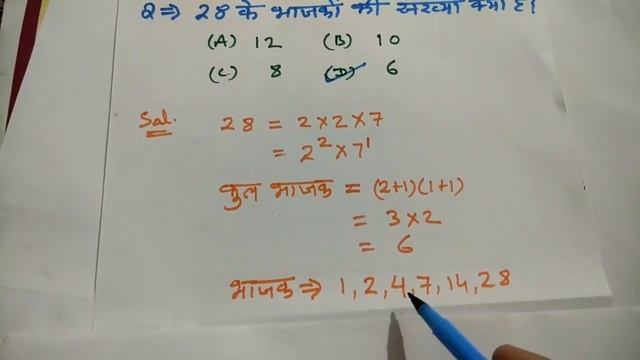 Q⇒ 28 के भाजकों की संख्या क्या है।
(A) 12 (B) 10
(C) 8 (D) 6
Sol. 28 = 2×2×7
= 2²×7¹
कुल भाजक = (2+1)(1+1)
= 3×2
= 6
भाजक ⇒ 1, 2, 4, 7, 14, 28